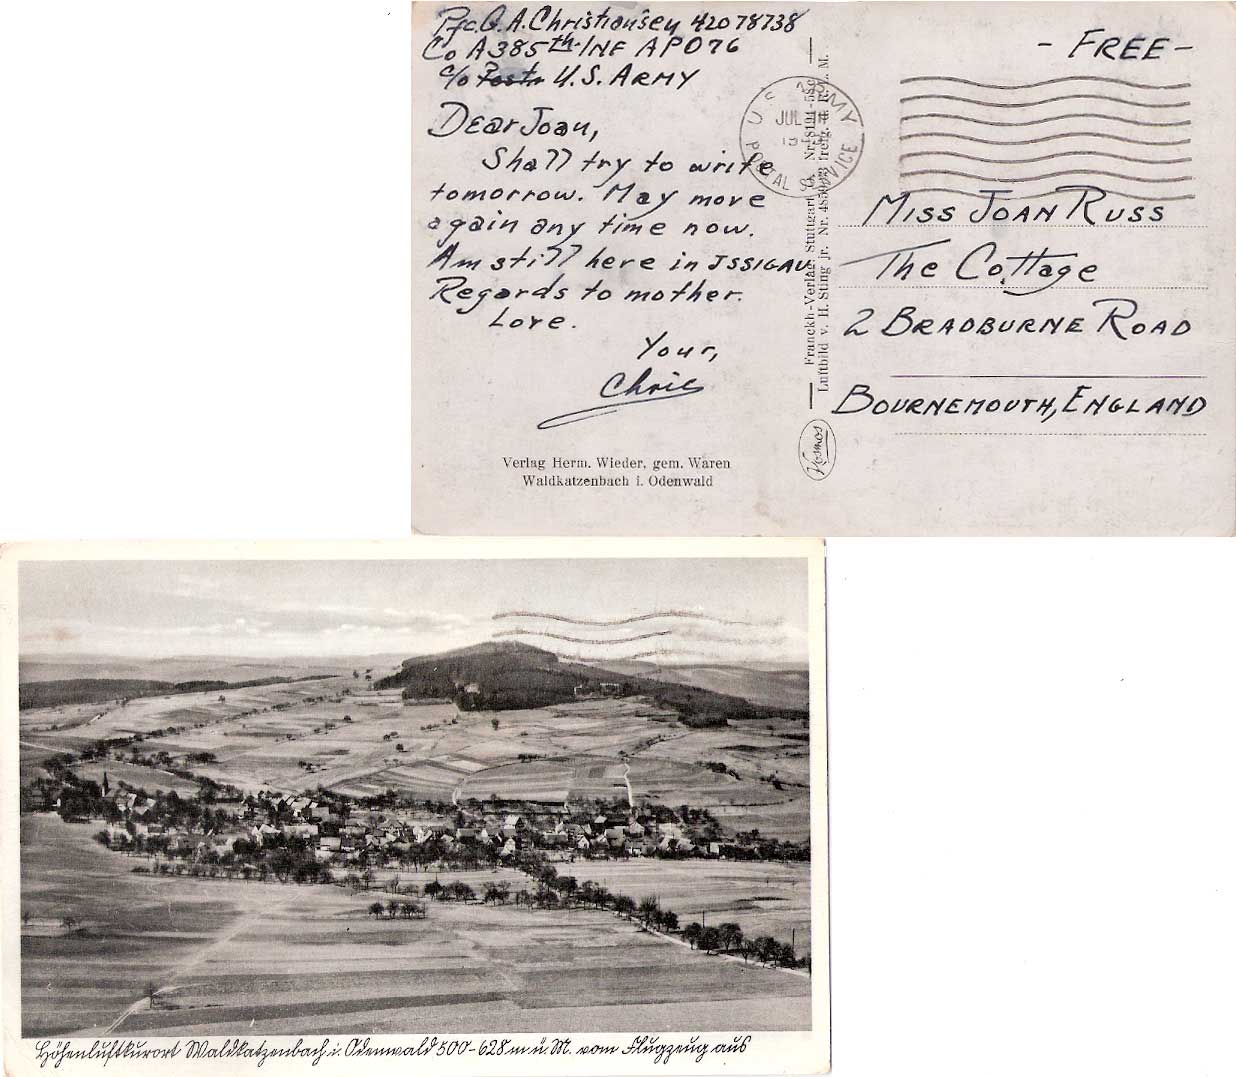 Pfc. G. A. Christiansen 42078738
Co A 385th INF APO 76
c/o Postm U.S. ARMY
Dear Joan,
Shall try to write
tomorrow. May move
again any time now.
Am still here in ISSIGAU.
Regards to mother.
Love.
Your,
Chris
Verlag Herm. Wieder, gem. Waren
Waldkatzenbach i. Odenwald
U.S. ARMY
POSTAL SERVICE
JUL
Franckh-Verlag, Stuttgart
Luftbild v. H. Sting jr. Nr.
Kosmos
- FREE -
MISS JOAN RUSS
The Cottage
2 BRADBURNE ROAD
BOURNEMOUTH, ENGLAND
Höhenluftkurort Waldkatzenbach i. Odenwald 500-628 m ü. M. vom Flugzeug aus